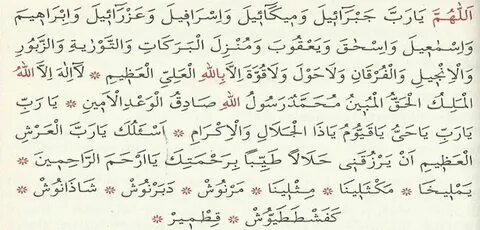 اَللّٰهُمَّ يَارَبَّ جَبْرَائِيلَ وَمِيكَائِيلَ وَاِسْرَافِيلَ وَعَزْرَائِيلَ وَاِبْرَاهِيمَ
وَاِسْمٰعِيلَ وَاِسْحٰقَ وَيَعْقُوبَ وَمُنْزِلَ الْبَرَكَاتِ وَالتَّوْرٰيةِ وَالزَّبُورِ
وَالْاِنْجِيلِ وَالْفُرْقَانِ وَلَاحَوْلَ وَلَاقُوَّةَ اِلَّا بِاللّٰهِ الْعَلِيِّ الْعَظِيمِ * لَٓااِلٰهَ اِلَّا اللّٰهُ
الْمَلِكُ الْحَقُّ الْمُبِينُ مُحَمَّدٌ رَسُولُ اللّٰهِ صَادِقُ الْوَعْدِالْاَمِينِ * يَا رَبِّ
يَارَبِّ يَاحَيُّ يَاقَيُّومُ يَاذَا الْجَلَالِ وَالْاِكْرَامِ * اَسْئَلُكَ يَارَبَّ الْعَرْشِ
الْعَظِيمِ اَنْ يَرْزُقَنِي حَلَالًا طَيِّبًا بِرَحْمَتِكَ يَااَرْحَمَ الرَّاحِمِينَ *
يَمْلِيخَا * مَكْثَلِينَا * مِثْلِينَا * مَرْنُوشْ * دَبَرْنُوشْ * شَاذَنُوشْ *
كَفَشْطَطَيُّوشْ * قِطْمِيرْ *